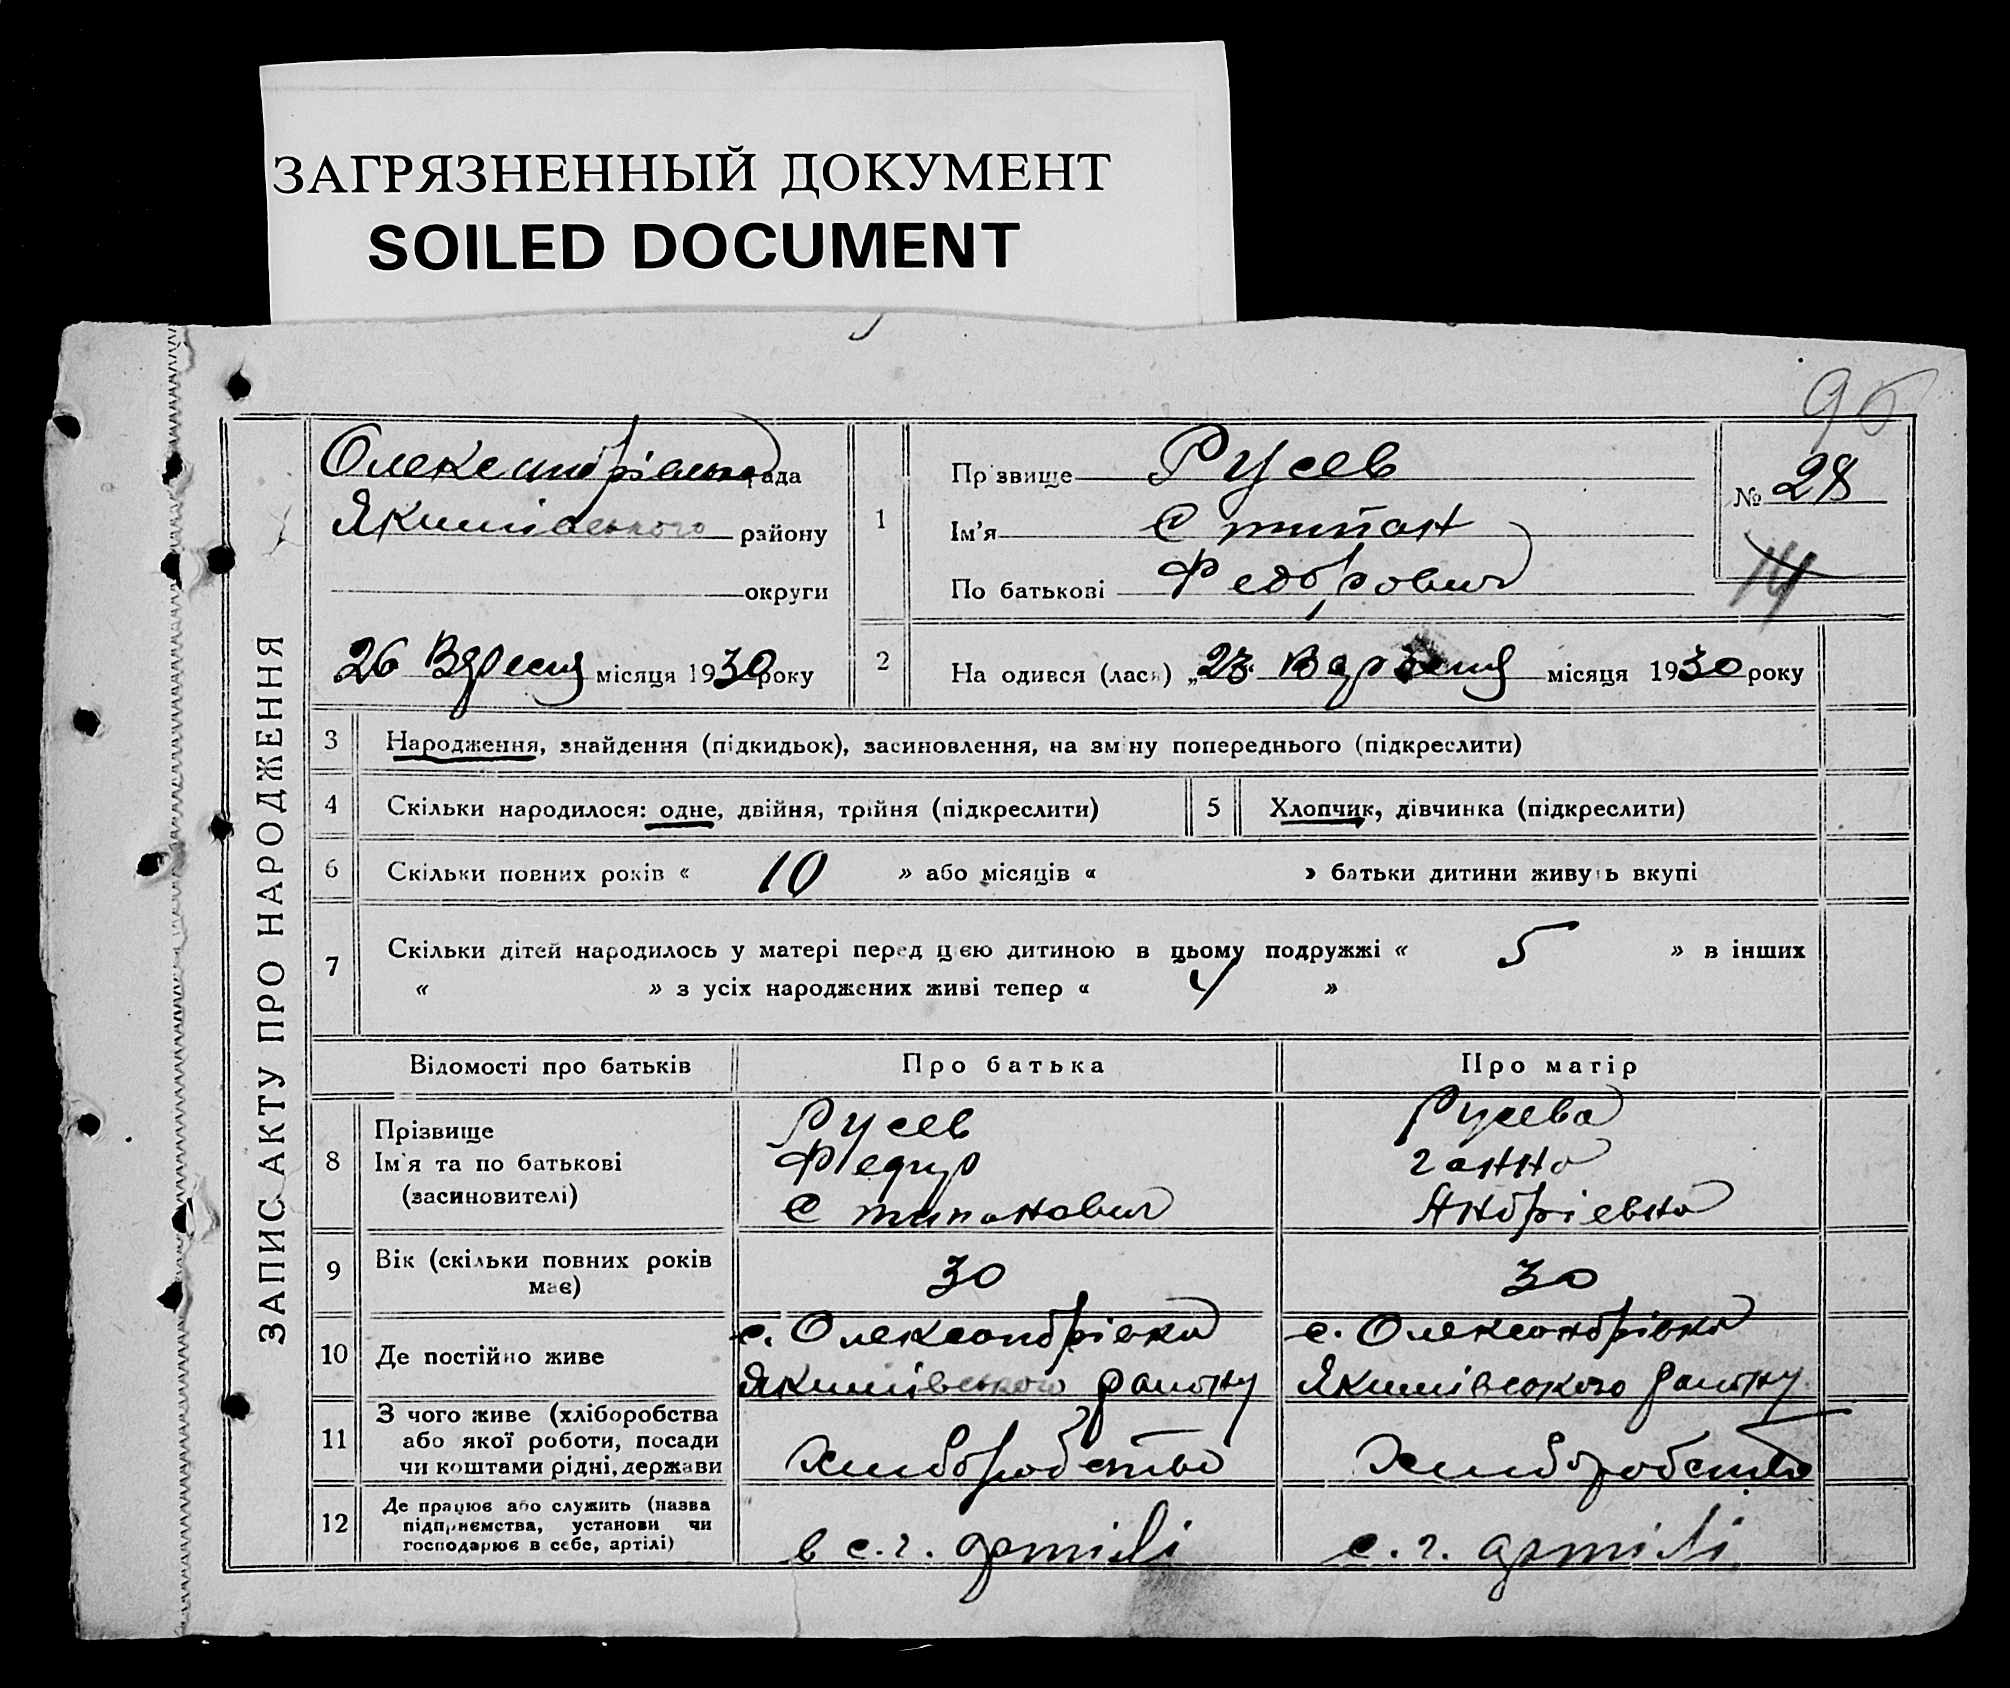 ЗАГРЯЗНЕННЫЙ ДОКУМЕНТ
SOILED DOCUMENT
ЗАПИС АКТУ ПРО НАРОДЖЕННЯ
Олександрівська рада
Якимівського району
округи
26 Вересня місяця 1930 року
1
Прізвище Русев
Ім'я Стипан
По батькові Федорович
№ 28
14
2
Народився (лася) „23 Вересня місяця 1930 року
3 Народження, знайдення (підкидьок), засиновлення, на зміну попереднього (підкреслити)
4 Скільки народилося: одне, двійня, трійня (підкреслити)
5 Хлопчик, дівчинка (підкреслити)
6 Скільки повних років « 10 » або місяців « » батьки дитини живуть вкупі
7 Скільки дітей народилось у матері перед цією дитиною в цьому подружжі « 5 » в інших
« » з усіх народжених живі тепер « 4 »
Відомості про батьків Про батька Про матір
8 Прізвище
Ім'я та по батькові
(засиновителі)
Русев
Федур
Стипанович
Русева
Ганна
Андріевна
9 Вік (скільки повних років
має)
30
30
10 Де постійно живе
с. Олександрівка
Якимівського району
с. Олександрівка
Якимівського району
11 З чого живе (хліборобства
або якої роботи, посади
чи коштами рідні, держави
Хлиборобство
Хлиборобство
12 Де працює або служить (назва
підприємства, установи чи
господарює в себе, артілі)
в с. г. артілі
с. г. артілі